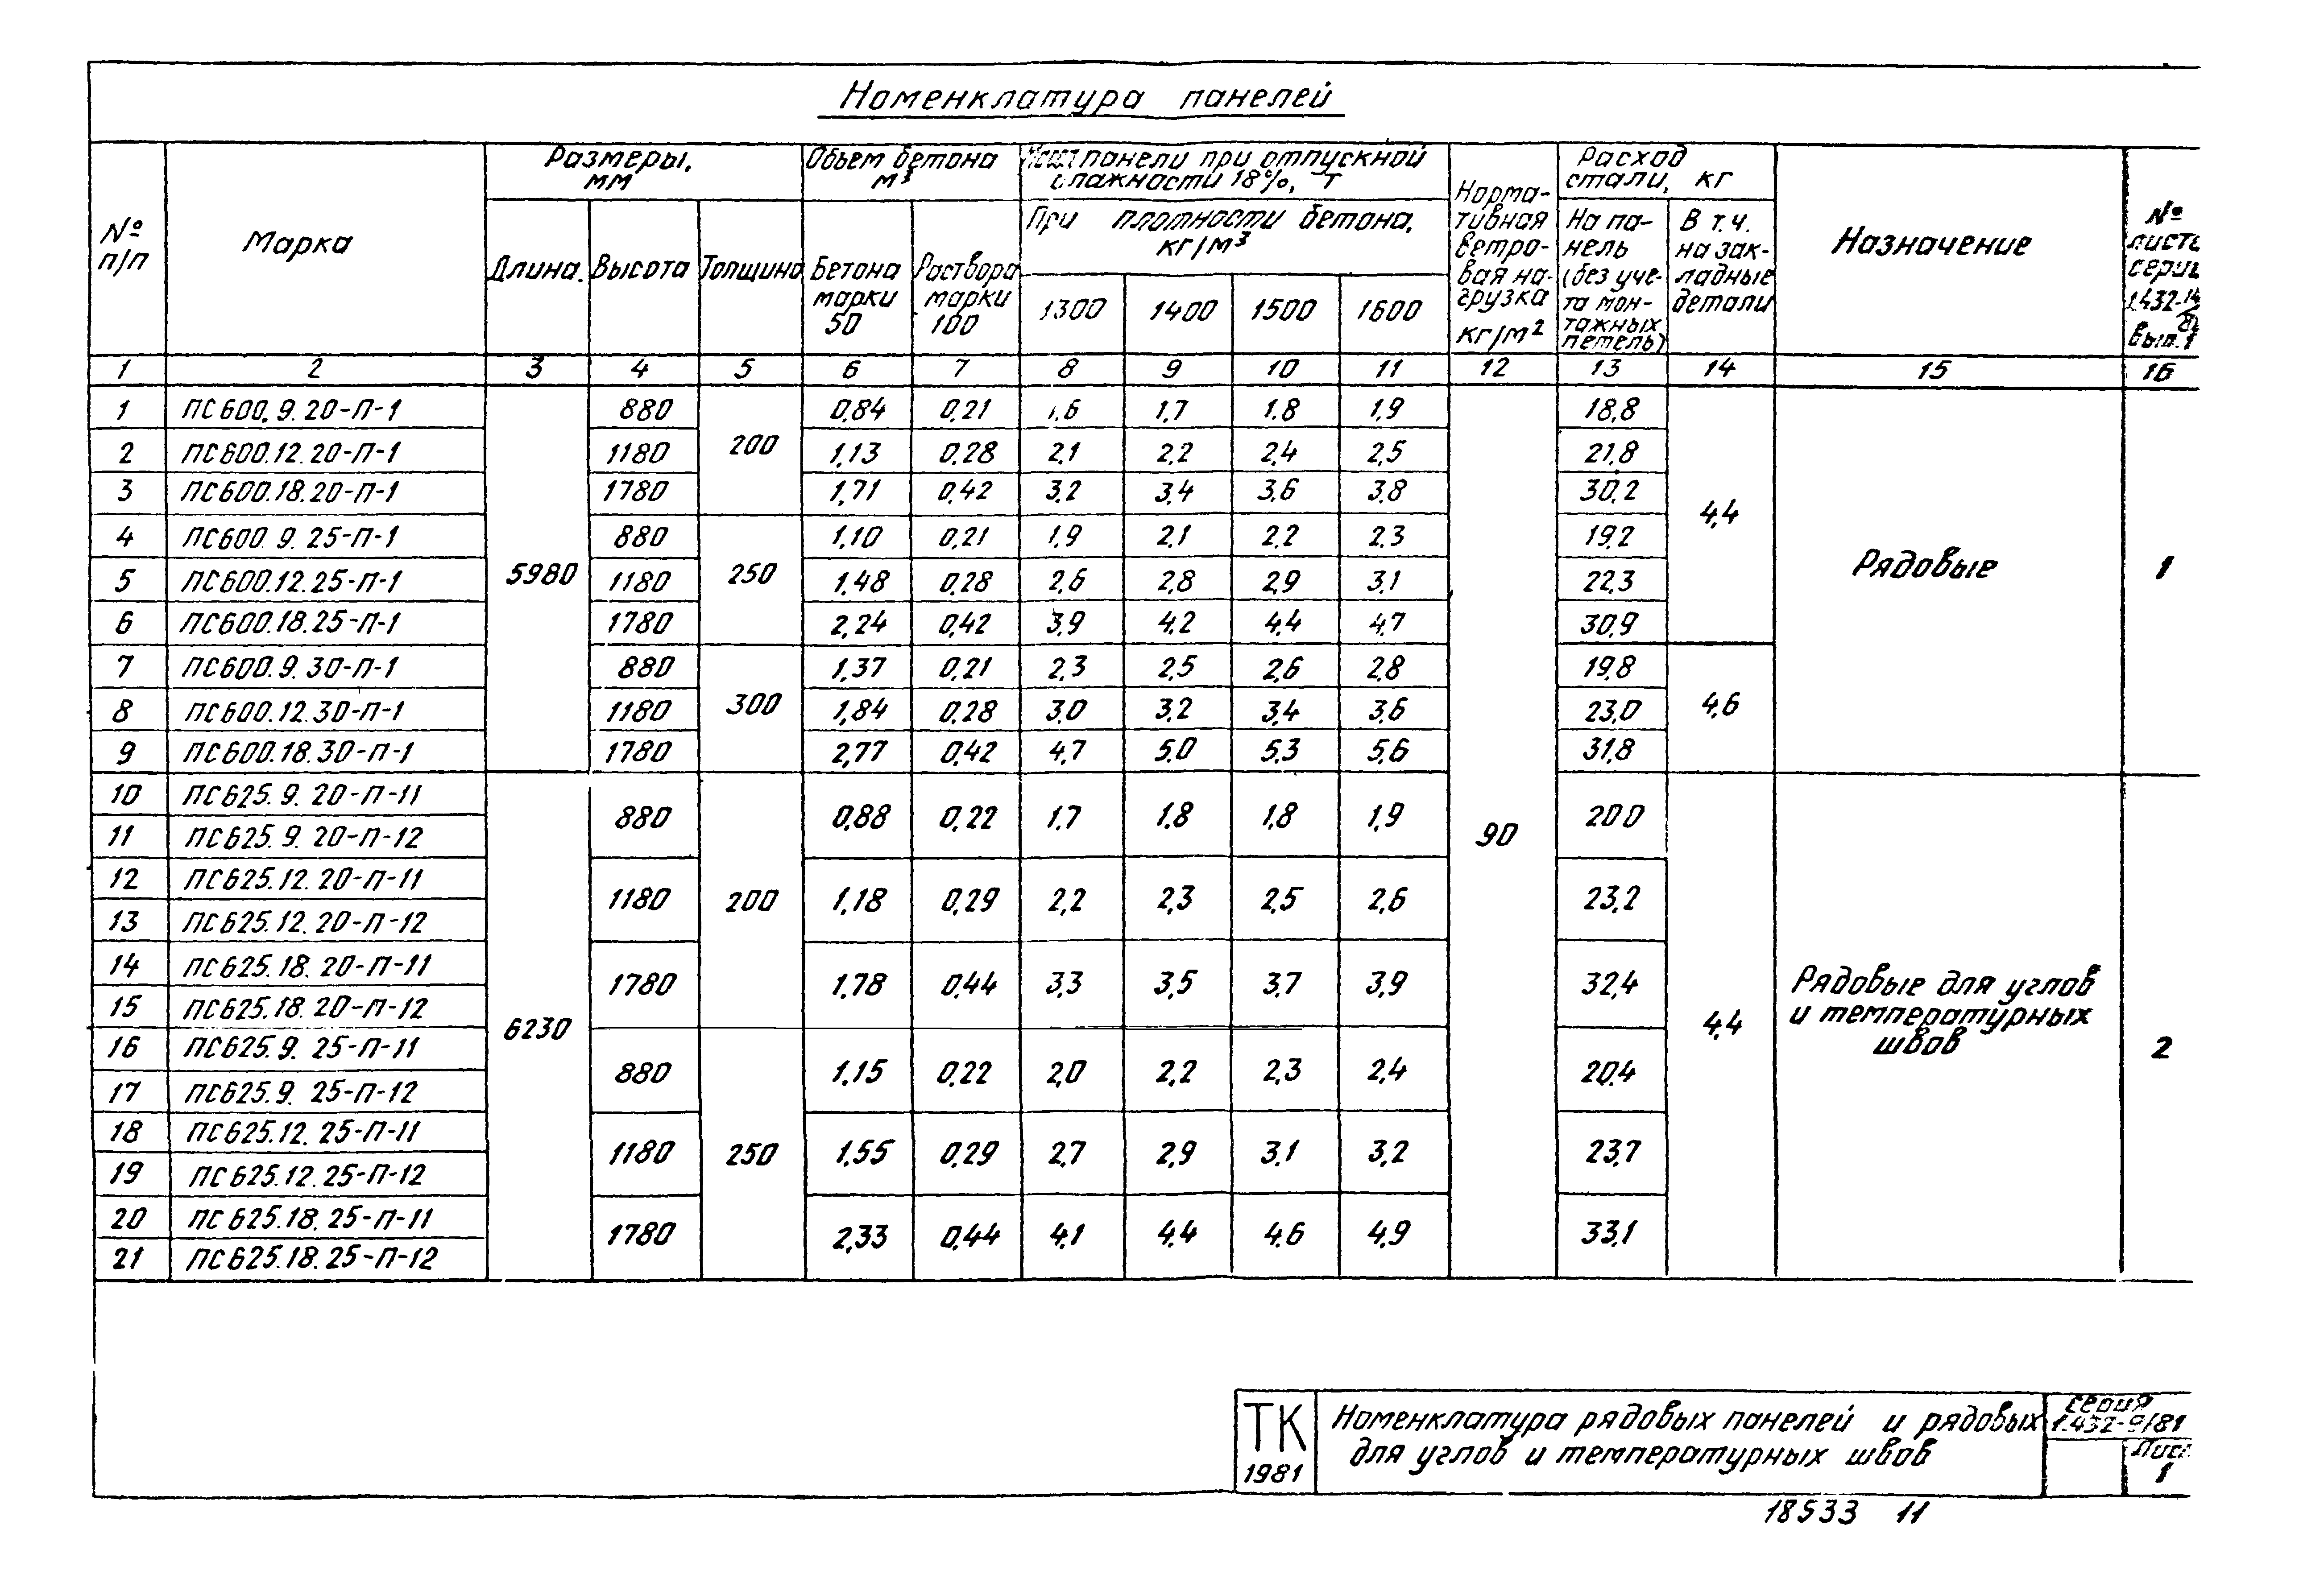 Номенклатура панелей
№ п/п | Марка | Размеры, мм | Объем бетона м³ | панели при отпускной влажности 18%, т | Нормативная ветровая нагрузка кг/м² | Расход стали, кг | Назначение | № листа серии 1.432-14/81 вып. 1
Длина. | Высота | Толщина | Бетона марки 50 | Раствора марки 100 | При плотности бетона, кг/м³ | На панель (без учета монтажных петель) | В т.ч. на закладные детали
1300 | 1400 | 1500 | 1600
1 | 2 | 3 | 4 | 5 | 6 | 7 | 8 | 9 | 10 | 11 | 12 | 13 | 14 | 15 | 16
1 | ПС600.9.20-П-1 | 5980 | 880 | 200 | 0,84 | 0,21 | 1,6 | 1,7 | 1,8 | 1,9 | 90 | 18,8 | 4,4 | Рядовые | 1
2 | ПС600.12.20-П-1 | 1180 | 1,13 | 0,28 | 2,1 | 2,2 | 2,4 | 2,5 | 21,8
3 | ПС600.18.20-П-1 | 1780 | 1,71 | 0,42 | 3,2 | 3,4 | 3,6 | 3,8 | 30,2
4 | ПС600.9.25-П-1 | 880 | 250 | 1,10 | 0,21 | 1,9 | 2,1 | 2,2 | 2,3 | 19,2
5 | ПС600.12.25-П-1 | 1180 | 1,48 | 0,28 | 2,6 | 2,8 | 2,9 | 3,1 | 22,3
6 | ПС600.18.25-П-1 | 1780 | 2,24 | 0,42 | 3,9 | 4,2 | 4,4 | 4,7 | 30,9
7 | ПС600.9.30-П-1 | 880 | 300 | 1,37 | 0,21 | 2,3 | 2,5 | 2,6 | 2,8 | 19,8 | 4,6
8 | ПС600.12.30-П-1 | 1180 | 1,84 | 0,28 | 3,0 | 3,2 | 3,4 | 3,6 | 23,0
9 | ПС600.18.30-П-1 | 1780 | 2,77 | 0,42 | 4,7 | 5,0 | 5,3 | 5,6 | 31,8
10 | ПС625.9.20-П-11 | 6230 | 880 | 200 | 0,88 | 0,22 | 1,7 | 1,8 | 1,8 | 1,9 | 20 0 | 4,4 | Рядовые для углов и температурных швов | 2
11 | ПС625.9.20-П-12
12 | ПС625.12.20-П-11 | 1180 | 1,18 | 0,29 | 2,2 | 2,3 | 2,5 | 2,6 | 23,2
13 | ПС625.12.20-П-12
14 | ПС625.18.20-П-11 | 1780 | 1,78 | 0,44 | 3,3 | 3,5 | 3,7 | 3,9 | 32,4
15 | ПС625.18.20-П-12
16 | ПС625.9.25-П-11 | 880 | 250 | 1,15 | 0,22 | 2,0 | 2,2 | 2,3 | 2,4 | 20,4
17 | ПС625.9.25-П-12
18 | ПС625.12.25-П-11 | 1180 | 1,55 | 0,29 | 2,7 | 2,9 | 3,1 | 3,2 | 23,7
19 | ПС625.12.25-П-12
20 | ПС625.18.25-П-11 | 1780 | 2,33 | 0,44 | 4,1 | 4,4 | 4,6 | 4,9 | 33,1
21 | ПС625.18.25-П-12
ТК 1981
Номенклатура рядовых панелей и рядовых
для углов и температурных швов
серия
1.432-9/81
Лист
1
18533 11